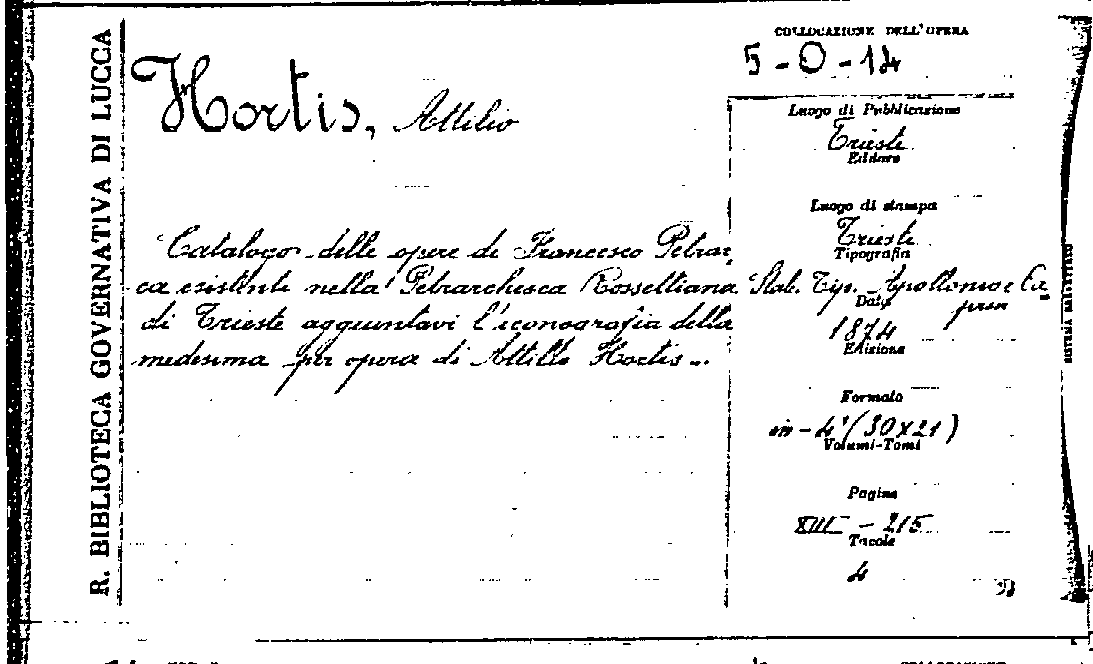 R. BIBLIOTECA GOVERNATIVA DI LUCCA
Hortis, Attilio
Catalogo delle opere di Francesco Petrar,
ca esistenti nella Petrarchesca Rossettiana
di Trieste aggiuntavi l'iconografia della
medesima per opera di Attilio Hortis..
COLLOCAZIONE DELL'OPERA
5-O-14
Luogo di Pubblicazione
Trieste
Editore
Luogo di stampa
Trieste
Tipografia
Stab. Tip. Apollonio e Ca
prin
Data
1874
Edizione
Formato
in-4°(30x21)
Volumi-Tomi
Pagine
XIII - 215
Tavole
4